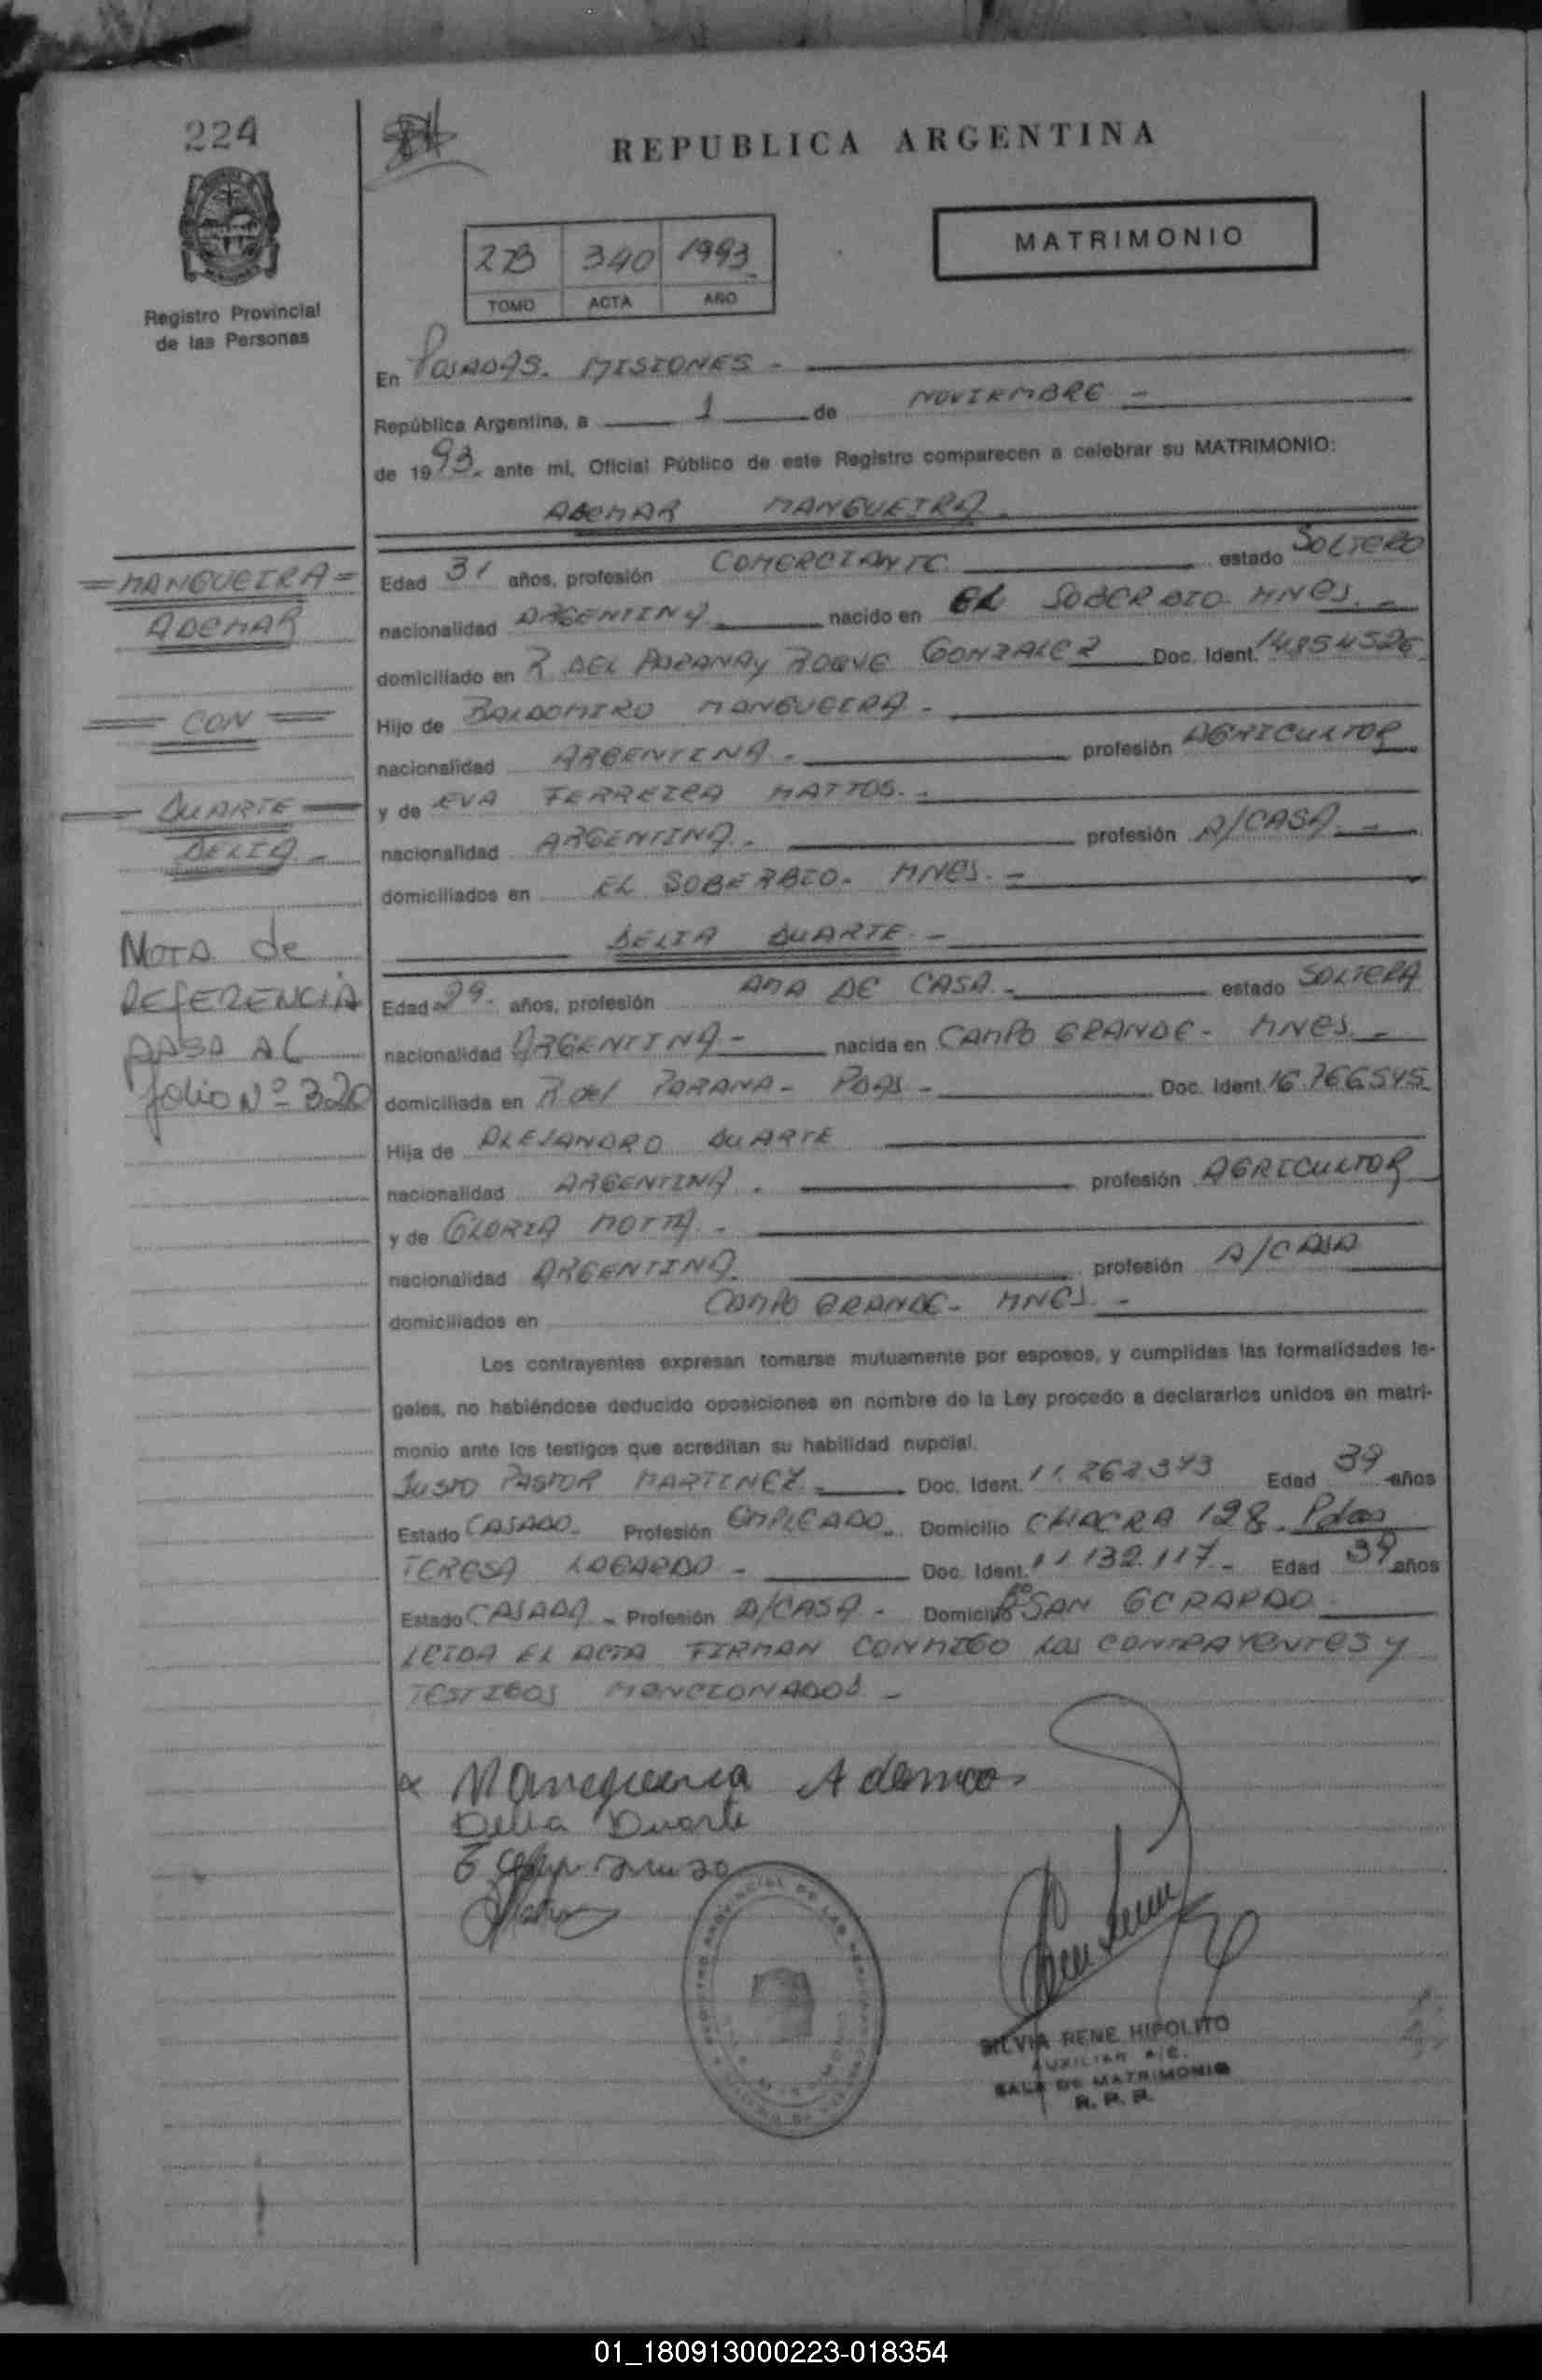 224
REPUBLICA ARGENTINA
MATRIMONIO
2B 340 1993
TOMO ACTA AÑO
Registro Provincial
de las Personas
En POSADAS. MISIONES -
República Argentina, a 1 de NOVIEMBRE -
de 1993. ante mi, Oficial Público de este Registro comparecen a celebrar su MATRIMONIO:
ADEMAR MANGUEIRA.
=MANGUEIRA=
ADEMAR
CON
DUARTE
DELIA.-
NOTA de
REFERENCIA
PASA AL
folio Nº 320
Edad 31 años, profesión COMERCIANTE estado SOLTERO
nacionalidad ARGENTINA nacido en EL SOBERBIO MNES. -
domiciliado en R DEL PARANA y ROQUE GONZALEZ Doc. Ident. 14854526
Hijo de BALDOMIRO MANGUEIRA -
nacionalidad ARGENTINA. - profesión AGRICULTOR
y de EVA FERREIRA MATTOS. -
nacionalidad ARGENTINA. profesión A/CASA. -
domiciliados en EL SOBERBIO. MNES. -
DELIA DUARTE. -
Edad 29- años, profesión AMA DE CASA. - estado SOLTERA
nacionalidad ARGENTINA - nacida en CAMPO GRANDE - MNES -
domiciliada en R del PARANA - PDAS - Doc. Ident. 16.766.545
Hija de ALEJANDRO DUARTE
nacionalidad ARGENTINA . profesión AGRICULTOR
y de GLORIA MOTTA. -
nacionalidad ARGENTINA. profesión A/CASA
domiciliados en CAMPO GRANDE - MNES. -
Los contrayentes expresan tomarse mutuamente por esposos, y cumplidas las formalidades le-
gales, no habiéndose deducido oposiciones en nombre de la Ley procedo a declararlos unidos en matri-
monio ante los testigos que acreditan su habilidad nupcial.
JUSTO PASTOR MARTINEZ. Doc. Ident. 11.262.343 Edad 39 años
Estado CASADO. Profesión EMPLEADO. Domicilio CHACRA 128. Pdas
TERESA LOGARDO - Doc. Ident. 11.132.117 - Edad 39 años
Estado CASADA - Profesión A/CASA - Domicilio Bº SAN GERARDO
LEIDA EL ACTA FIRMAN CONMIGO LOS CONTRAYENTES y
TESTIGOS MENCIONADOS -
Mangueira Ademar
Delia Duarte
SILVIA RENE HIPOLITO
AUXILIAR A/C.
SALA DE MATRIMONIO
R. P. P.
01_180913000223-018354